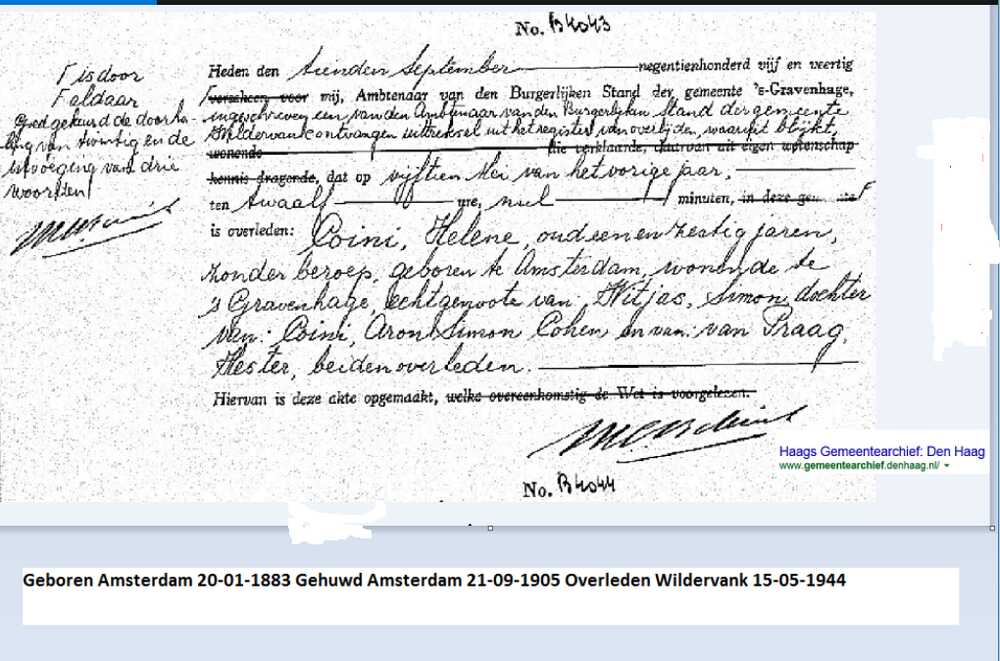 No. B4043
Γ is door
Γ aldaar
Goedgekeurd de doorha-
ling van twintig en de
bijvoeging van drie
woorden!
Heden den tienden September negentienhonderd vijf en veertig
Γ verscheen voor mij, Ambtenaar van den Burgerlijken Stand der gemeente 's-Gravenhage,
ingeschreven een van den Ambtenaar van den Burgerlijken Stand der gemeente
Wildervank ontvangen uittreksel uit het register van overlijden, waaruit blijkt,
wonende die verklaarde, daarvan uit eigen wetenschap
kennis dragende, dat op vijftien Mei van het vorige jaar,
ten twaalf ure, nul minuten, in deze gemeente Γ
is overleden: Coini, Helene, oud een en zestig jaren,
zonder beroep, geboren te Amsterdam, wonende te
's Gravenhage, echtgenoote van Witjas, Simon, dochter
van: Coini, Aron Simon Cohen en van: van Praag,
Hester, beiden overleden.
Hiervan is deze akte opgemaakt, welke overeenkomstig de Wet is voorgelezen.
Haags Gemeentearchief: Den Haag
www.gemeentearchief.denhaag.nl/
No. B4044
Geboren Amsterdam 20-01-1883 Gehuwd Amsterdam 21-09-1905 Overleden Wildervank 15-05-1944